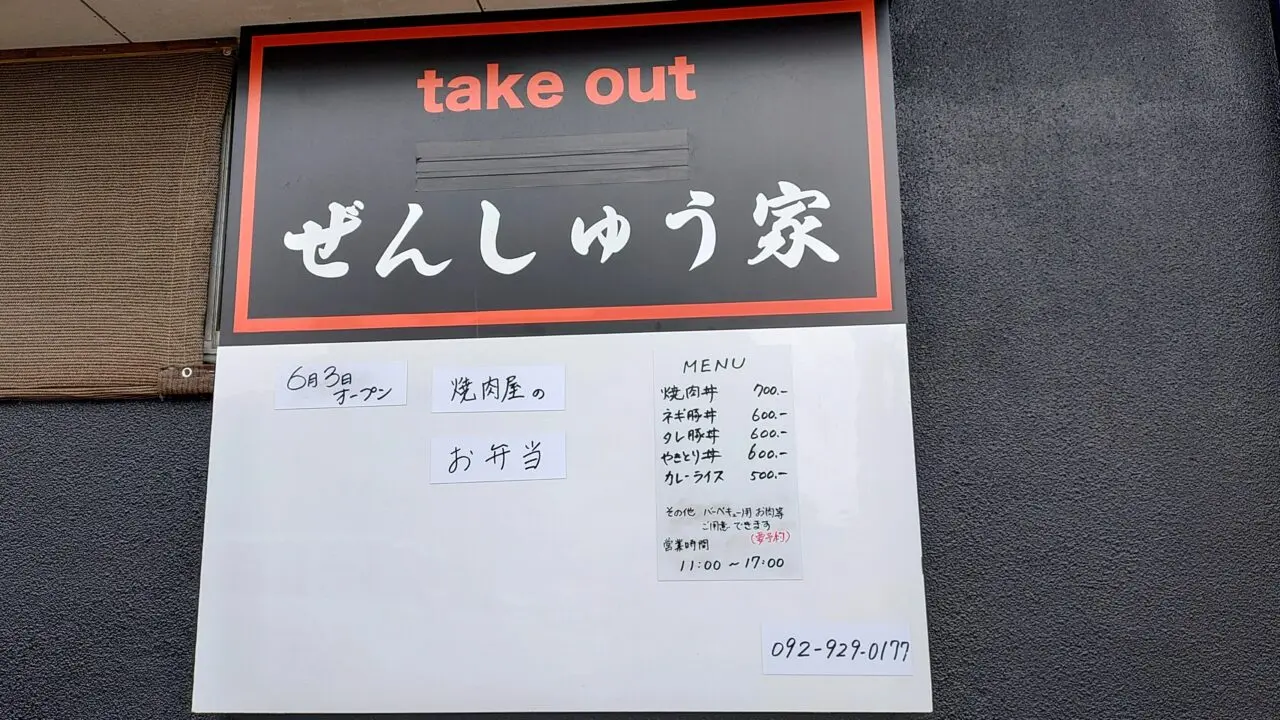 take out
ぜんしゅう家
6月3日
オープン
焼肉屋の
お弁当
MENU
焼肉丼 700.-
ネギ豚丼 600.-
タレ豚丼 600.-
やきとり丼 600.-
カレーライス 500.-
その他 バーベキュー用 お肉等
ご用意 できます
(要予約)
営業時間
11:00 ~ 17:00
092-929-0177